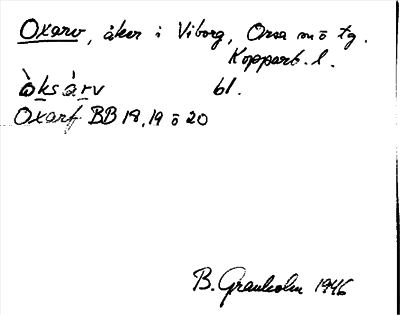 Oxarv, åker i Viborg, Orsa sn o tg.
Kopparb. l.
òksàrv bl.
Oxarf BB 18, 19 o 20
B. Granholm 1946